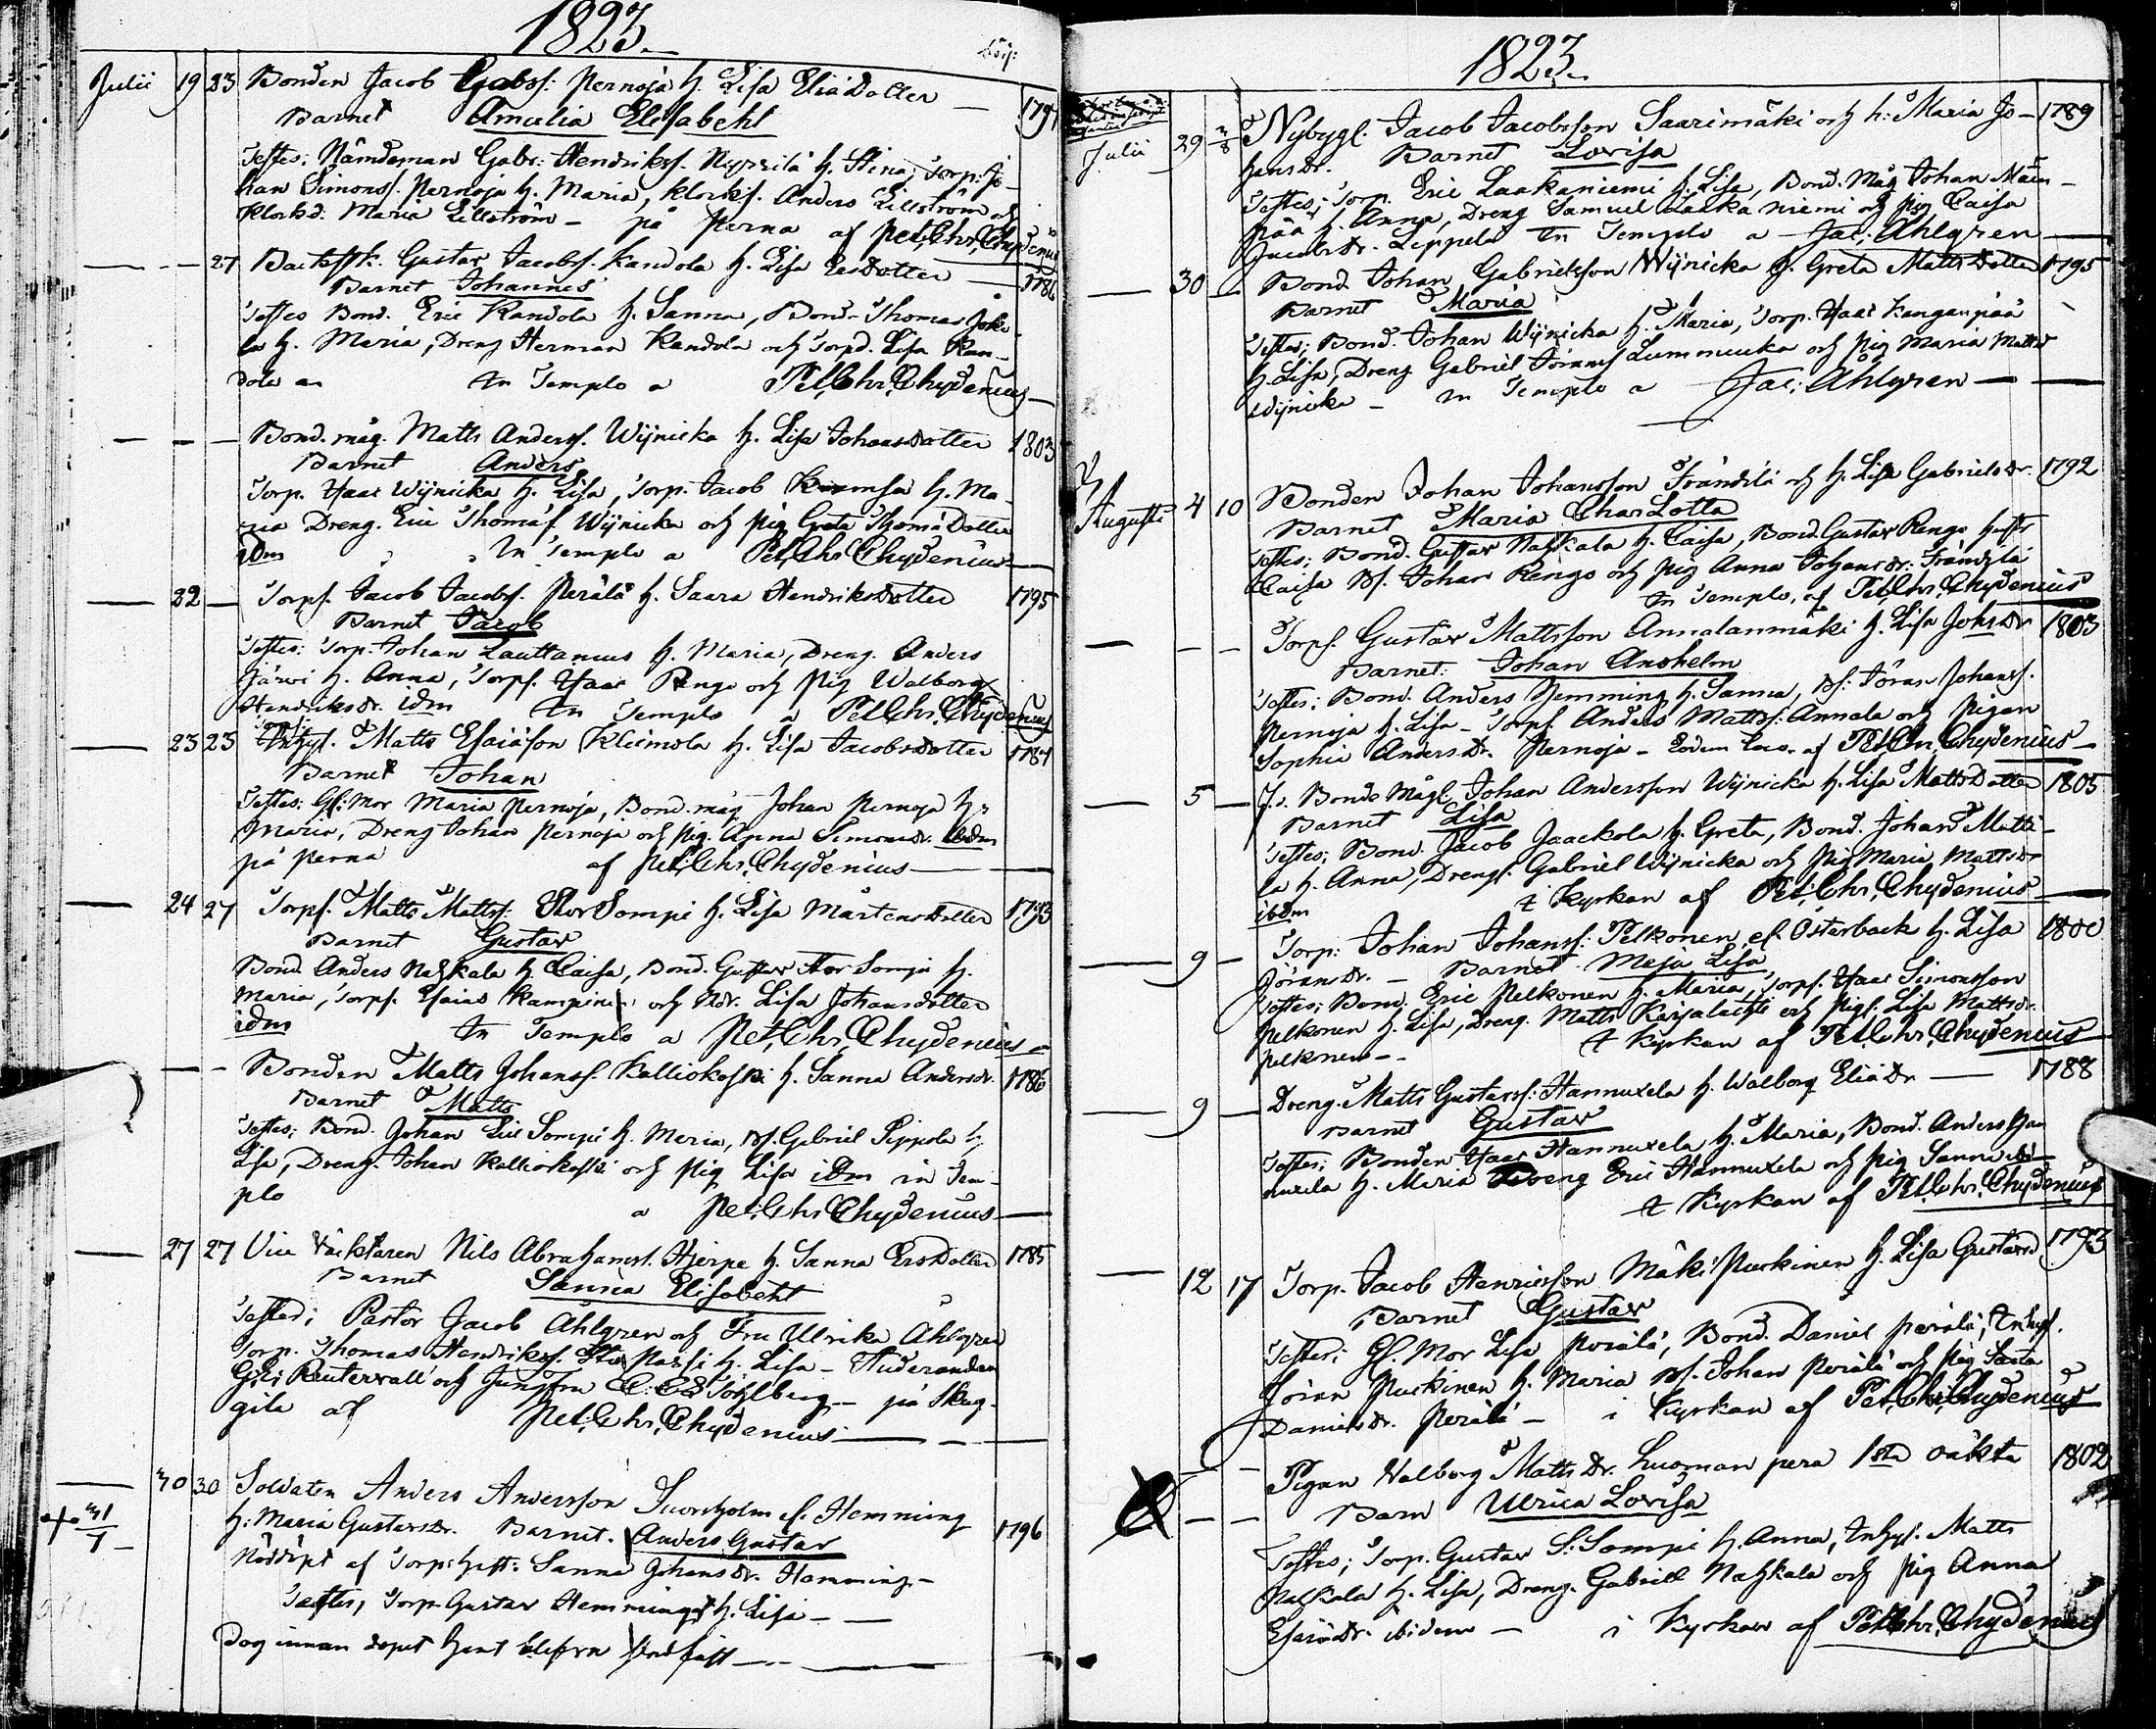 1823.
Julii 19 23 Bonden Jacob Gabrs. Pernoja h. Lisa EliæDotter — 1797
Barnet Amalia Elisabeht
Testes; Nämdeman Gabr: Hendrikss. h. Stina, Torp: Jo-
han Simonss. Pernoja h. Maria, Klockf. Anders Lillström och
Klockd. Maria Lillström – på Perna af Pet. Chr. Chydenius
— — 27 Gustav Jacobss. Kandola h. Lisa ErsDotter — 1786
Barnet Johannes
Testes Bond. Eric Kandola h. Sanna, Bond. Thomas Joke
la h. Maria, Dreng Herman Kandola och Torpd. Lisa Kan-
dola In Templo a Pet. Chr. Chydenius —
— — — Bond. måg. Matts Anderss. Wijnicka h. Lisa Johansdotter 1803
Barnet Anders
Torp. Isaac Wijnicka h. Lisa, Torp. Jacob h. Ma-
ria Dreng. Eric Thomæs. Wijnicka och pig Greta ThomæDotter
idm In Templo a Pet. Chr. Chydenius —
— 22 — Torps. Jacob Jacobss. Perälä h. Saara Hendriksdotter 1795
Barnet Jacob
Testes: Torp. Johan Lauttamus h. Maria, Dreng. Anders
Järwi h. Anna, Torps. Isaac Rengo och pig Walborg
Hendriksdr. idm In Templo a Pet. Chr. Chydenius
Torp:
— 23 23 Inhys. Matts Esaiäson Kleimola h. Lisa Jacobsdotter 1784
Barnet Johan
Testes; Gl: Mor Maria Pernoja, Bond. måg Johan Pernoja h:
Maria, Dreng Johan Pernoja och pig. Anna Simonsdr. ibdm
på Perna af Pet. Chr. Chydenius —
— 24 27 Torps. Matts Mattss: StorSompi h. Lisa MårtensDotter 1793
Barnet Gustav
Bond Anders Nahkala h. Caisa, Bond. Gustav Stor Sompi h.
Maria, Torps. Esaias Kampinen och Lisa Johansdotter
idm In Templo a Pet. Chr. Chydenius —
— — Bonden Matts Johanss. Kalliokoski h. Sanna Andersdr. 1786
Barnet Matts
Testes; Bond. Johan Lill Sompi h. Maria, Bs. Gabriel Sippola h
Lisa, Dreng. Johan Kalliokoski och pig Lisa idm in Tem-
plo a Pet. Chr. Chydenius —
— 27 27 Vice Nils Abrahamss. Hjerpe h. Sanna ErsDotter 1785
Barnet Sanna Elisabeht
Testes; Pastor Jacob Ahlgren och Fru Ulrika Ahlgren
Torp. Thomas Hendrikss. Stor Passi h. Lisa – Studeranden
G: Reuterwall och Jungfru C: — på Skog-
gila af Pet. Chr. Chydenius —
— 30 30 Soldaten Anders Andersson Snorrholm el. Hemming
h. Maria Gustavsdr. Barnet. Anders Gustav 1796
+ 31/7 Nöddöpt af Torp: hust: Sanna Johansdr. Hemming –
Testes, Torp. Gustav Hemming h. Lisa — —
Dog innan dopet hant blifva —

1823.
Julii 29 3/8 Nybygl. Jacob Jacobsson Saarimäki och h: Maria Jo- 1789
hansdr. Barnet Lovisa
Testes; Torp. Eric Laakaniemi h. Lisa, Bond. Måg Johan Mäen-
pää h. Anna, Dreng Samuel Laakaniemi och pig Caisa
Jacobsdr. Leppelä In Templo a Jac: Ahlgren —
— 30 — Bond Johan Gabrielsson Wijnicka h. Greta MattsDotter 1795
Barnet Maria
Testes; Bond. Johan Wijnicka h. Maria, Torp. Isaac Kanganpää
h. Lisa, Dreng Gabriel Jöranss Lummukka och pig Maria Mattsd
Wijnicka – In Templo a Jac: Ahlgren —
Augusti 4 10 Bonden Johan Johansson Trändilä och h. Lisa Gabrielsdr. 1792
Barnet Maria CharLotta
Testes; Bond. Gustav Nahkala h. Caisa, Bond. Gustav Rengo hustr
Caisa Bs. Johan Rengo och pig Anna Johansdr: Trändilä
In Templo, af Pet. Chr. Chydenius
— — — Torps. Gustav Mattsson Annalanmäki h. Lisa Johsdr 1803
Barnet. Johan Anshelm
Testes; Bond. Anders Hemming h. Sanna, Bs: Jöran Johanss.
Pernoja h. Lisa – Torps. Anders Mattss: Annala och Pigan
Sophia Andersdr. Pernoja – Eodem loco. af Pet. Chr. Chydenius —
— 5 — Bonde Mågl. Johan Andersson Wijnicka h. Lisa MattsDotter 1805
Barnet Lisa
Testes; Bond. Jacob Jaackola h. Greta, Bond. Johan Matti-
la h. Anna, Drengl. Gabriel Wijnicka och pig Maria Mattsdr
ibdm i Kyrkan af Pet. Chr. Chydenius —
— 9 — Torp: Johan Johanss: Pelkonen el. Österback h. Lisa 1800
Jöransdr. – Barnet Maja Lisa
Testes; Bond. Eric Pelkonen h. Maria, Torps. Isaac Simonsson
Pelkonen h. Lisa, Dreng. Matts Karjalachti och pigl. Lisa Mattsdr.
Pelkonen – – i Kyrkan af Pet. Chr. Chydenius
— 9 — Dreng. Matts Gustavss: Hannuxela h. Walborg EliæDr — 1788
Barnet Gustav
Testes; Bonden Isaac Hannuxela h. Maria, Bond. Anders Han
nuxela h. Maria Dreng Eric Hannuxela och pig Sanna
i Kyrkan af Pet. Chr. Chydenius
— 12 17 Torp. Jacob Henricsson Mäki Puskinen h. Lisa Gustavsd 1793
Barnet Gustav
Testes; Gl. Mor Lisa Perälä, Bond. Daniel Perälä, Inhys.
Jöran Puskinen h. Maria Bs. Johan Perälä och pig Saara
Danielsdr. Perälä – i Kyrkan af Pet. Chr. Chydenius
— — Pigan Walborg Mattsdr. Luoman pera 1sta oäkta 1802
— — Barn Ulrica Lovisa
Testes; Torp. Gustav S: Sompi h. Anna, Inhys. Matts
Nahkala h. Lisa, Dreng. Gabriel Nahkala och pig Anna
Esaiædr. ibidem – i Kyrkan af Pet. Chr. Chydenius